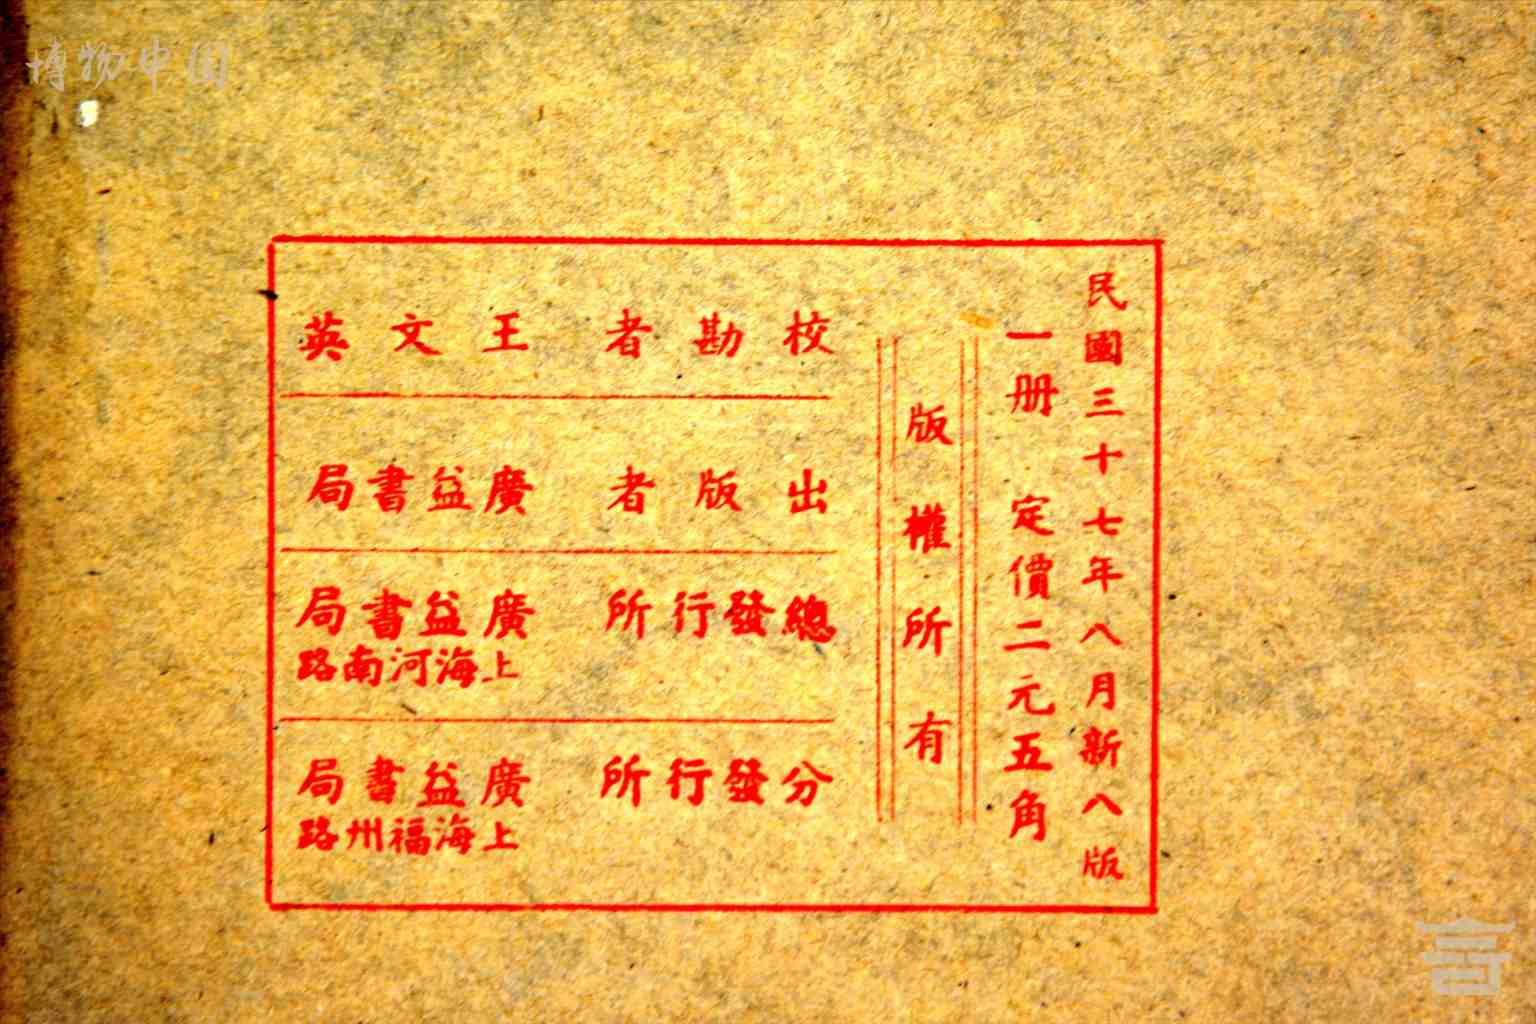 博物中国
民國三十七年八月新八版
一册 定價二元五角
版權所有
校勘者 王文英
出版者 廣益書局
總發行所 廣益書局
上海河南路
分發行所 廣益書局
上海福州路